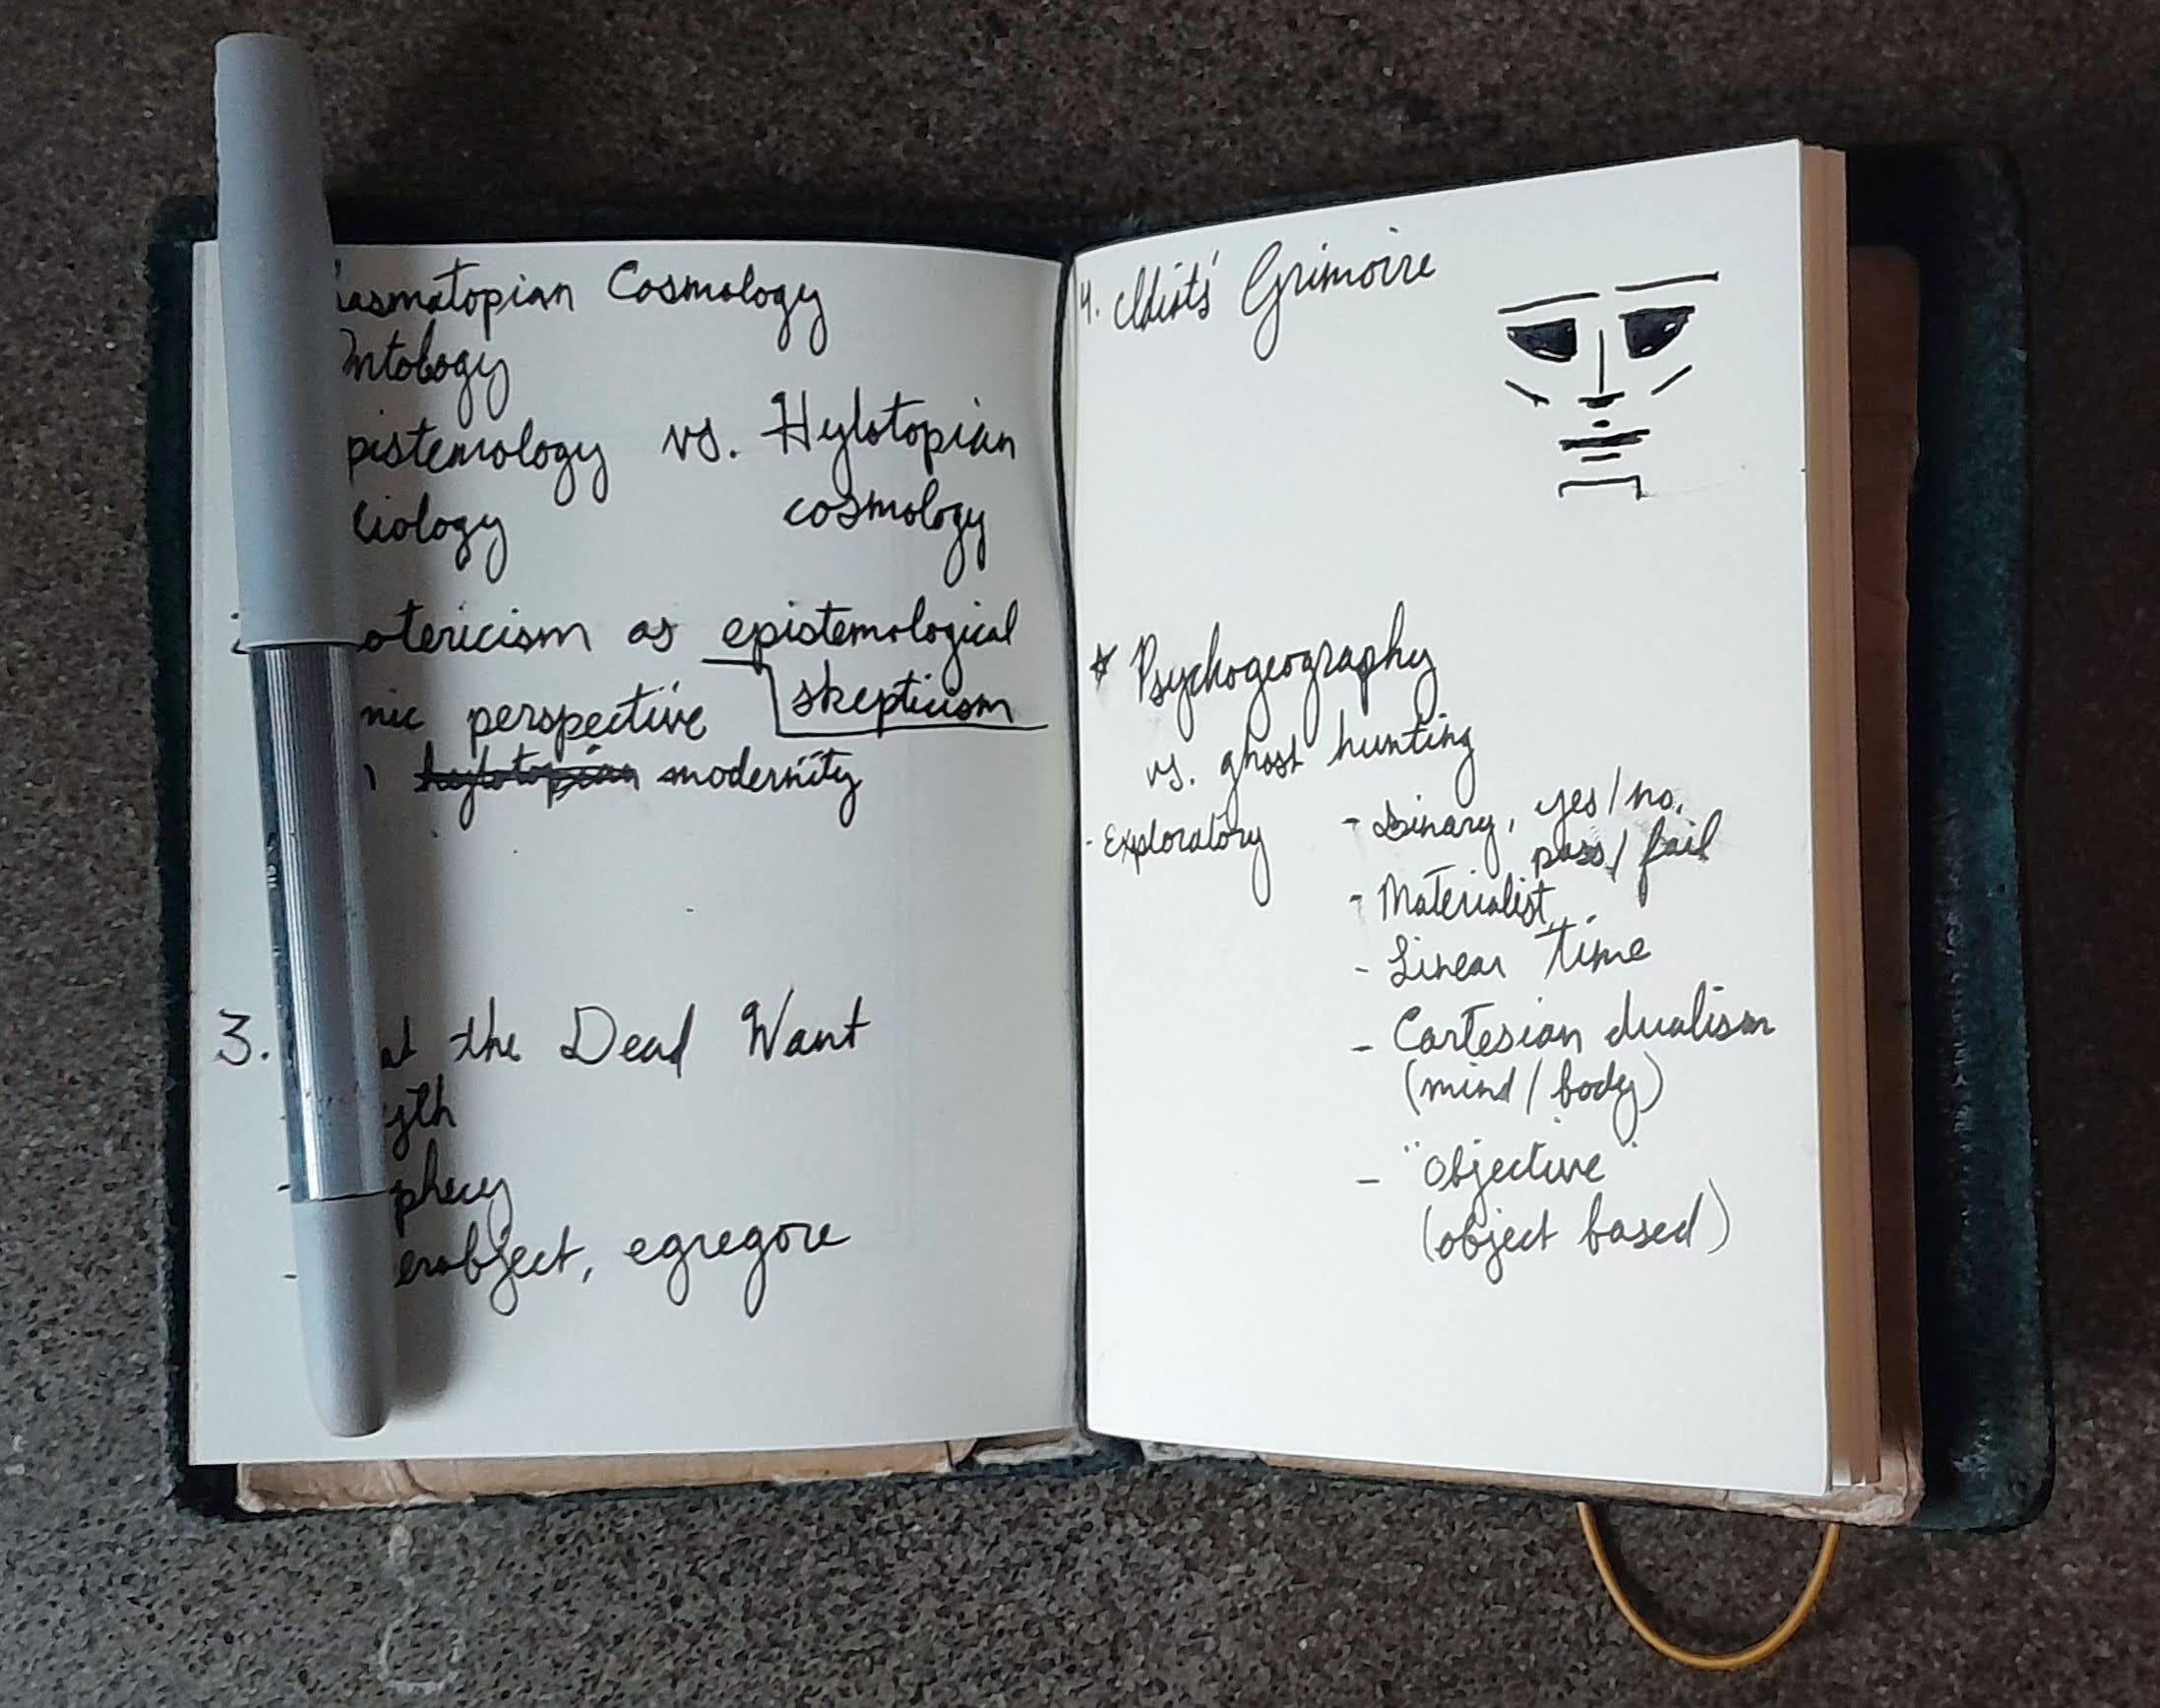 asmatopian Cosmology
ntology
pistemology vs. Hylotopian
iology cosmology
otericism as epistemological
skepticism
nic perspective
hylotopian modernity
3. at the Dead Want
- yth
- phecy
- erobject, egregore
4. Grimoire
* Psychogeography
vs. ghost hunting
- Exploratory
- Binary, yes/no.
pass/fail
- Materialist
- Linear Time
- Cartesian dualism
(mind/body)
- "Objective"
(object based)